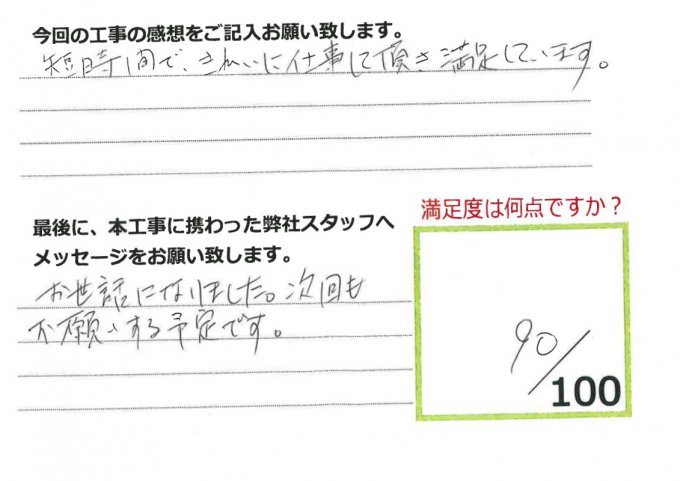 今回の工事の感想をご記入お願い致します。
短時間で、きれいに仕事して頂き満足しています。
最後に、本工事に携わった弊社スタッフへ
メッセージをお願い致します。
お世話になりました。次回も
お願いする予定です。
満足度は何点ですか？
90/100